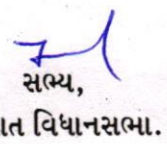 સભ્ય,
ાત વિધાનસભા.